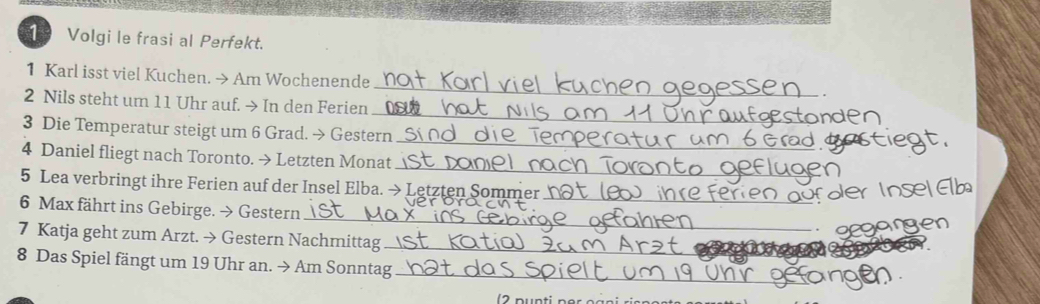 1 Volgi le frasi al Perfekt.
1 Karl isst viel Kuchen. → Am Wochenende hat Karl viel kuchen gegessen.
2 Nils steht um 11 Uhr auf. → In den Ferien hat Nils am 11 Uhr aufgestanden
3 Die Temperatur steigt um 6 Grad. → Gestern sind die Temperatur um 6 Grad stiegt.
4 Daniel fliegt nach Toronto. → Letzten Monat ist Daniel nach Toronto geflugen
5 Lea verbringt ihre Ferien auf der Insel Elba. → Letzten Sommer hat lea ihre Ferien auf der Insel Elba
verbracht.
6 Max fährt ins Gebirge. → Gestern ist Max ins Gebirge gefahren.
7 Katja geht zum Arzt. → Gestern Nachmittag ist Katja zum Arzt gegangen.
8 Das Spiel fängt um 19 Uhr an. → Am Sonntag hat das Spielt um 19 Uhr gefangen.